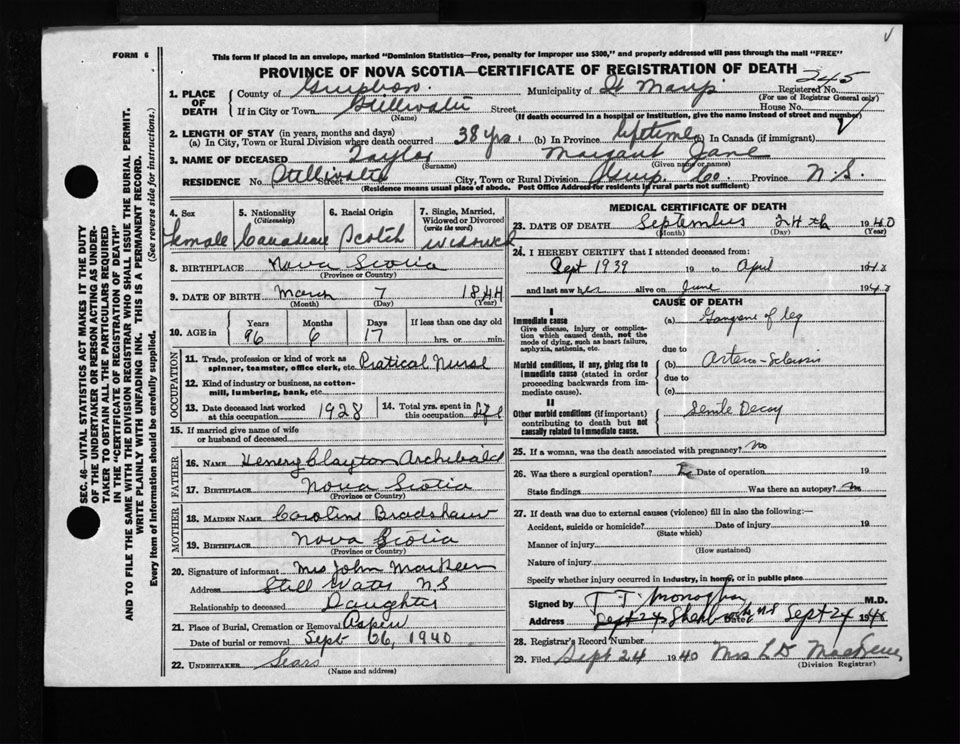 FORM 6
This form if placed in an envelope, marked "Dominion Statistics—Free, penalty for improper use $300," and properly addressed will pass through the mail "FREE"
PROVINCE OF NOVA SCOTIA—CERTIFICATE OF REGISTRATION OF DEATH
245
1. PLACE OF DEATH
County of Municipality of St Marys Registered No.
(For use of Registrar General only)
If in City or Town Stillwater Street House No.
(Name) (If death occurred in a hospital or institution, give the name instead of street and number)
2. LENGTH OF STAY (in years, months and days)
(a) In City, Town or Rural Division where death occurred 38 yrs. (b) In Province lifetime (c) In Canada (if immigrant)
3. NAME OF DECEASED Taylor Margaret Jane
(Surname) (Given name or names)
RESIDENCE No. Stillwater Street City, Town or Rural Division Guys. Co. Province N.S.
(Residence means usual place of abode. Post Office Address for residents in rural parts not sufficient)
4. Sex
female
5. Nationality
(Citizenship)
Canadian
6. Racial Origin
Scotch
7. Single, Married, Widowed or Divorced
(write the word)
Widowed
8. BIRTHPLACE Nova Scotia
(Province or Country)
9. DATE OF BIRTH March 7 1844
(Month) (Day) (Year)
10. AGE in
Years Months Days If less than one day old
96 6 17 hrs. or min.
OCCUPATION
11. Trade, profession or kind of work as spinner, teamster, office clerk, etc. Pratical Nurse
12. Kind of industry or business, as cotton-mill, lumbering, bank, etc.
13. Date deceased last worked at this occupation 1928
14. Total yrs. spent in this occupation life
15. If married give name of wife or husband of deceased
FATHER
16. NAME Henery Clayton Archibald
17. BIRTHPLACE Nova Scotia
(Province or Country)
MOTHER
18. MAIDEN NAME Caroline Bradshaw
19. BIRTHPLACE Nova Scotia
(Province or Country)
20. Signature of informant Mrs John MacKeen
Address Still Water N.S
Relationship to deceased Daughter
21. Place of Burial, Cremation or Removal Aspen
Date of burial or removal Sept 26, 1940
22. UNDERTAKER Sears
(Name and address)
MEDICAL CERTIFICATE OF DEATH
23. DATE OF DEATH September 24th 1940
(Month) (Day) (Year)
24. I HEREBY CERTIFY that I attended deceased from:
Sept 1939 19 to April 19
and last saw her alive on June 194
CAUSE OF DEATH
I
Immediate cause
Give disease, injury or complication which caused death, not the mode of dying, such as heart failure, asphyxia, asthenia, etc.
(a) Gangrene of leg
due to
Morbid conditions, if any, giving rise to immediate cause (stated in order proceeding backwards from immediate cause).
(b) Arterio-Sclerosis
due to
(c)
II
Other morbid conditions (if important) contributing to death but not causally related to immediate cause.
Senile Decay
25. If a woman, was the death associated with pregnancy? no
26. Was there a surgical operation? Date of operation 19
State findings Was there an autopsy? no
27. If death was due to external causes (violence) fill in also the following:—
Accident, suicide or homicide? Date of injury 19
(State which)
Manner of injury
(How sustained)
Nature of injury
Specify whether injury occurred in industry, in home, or in public place
Signed by M.D.
Address Date Sept 24 19
28. Registrar's Record Number
29. Filed Sept 24 1940 Mrs L D
(Division Registrar)
SEC. 46—VITAL STATISTICS ACT MAKES IT THE DUTY
OF THE UNDERTAKER OR PERSON ACTING AS UNDER-
TAKER TO OBTAIN ALL THE PARTICULARS REQUIRED
IN THE "CERTIFICATE OF REGISTRATION OF DEATH"
AND TO FILE THE SAME WITH THE DIVISION REGISTRAR WHO SHALL ISSUE THE BURIAL PERMIT.
WRITE PLAINLY WITH UNFADING INK. THIS IS A PERMANENT RECORD.
Every item of Information should be carefully supplied. (See reverse side for instructions.)